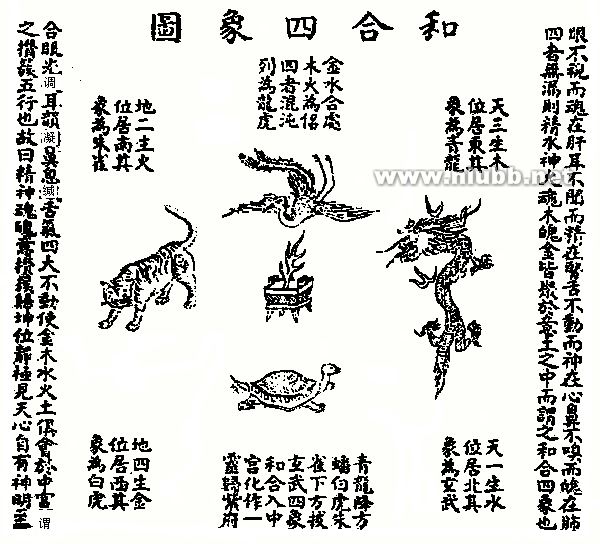 和合四象圖
眼不視而魂在肝耳不聞而精在腎舌不動而神在心鼻不嗅而魄在肺
四者無漏則精水神火魂木魄金皆聚於意土之中而謂之和合四象也
天三生木
位居東其
象為青龍
金水合處
木火為侶
四者混沌
列為龍虎
地二生火
位居南其
象為朱雀
www.niubb.net
天一生水
位居北其
象為玄武
青龍降方
蟠白虎朱
雀下方拔
玄武四象
和合入中
宮化作一
靈歸紫府
地四生金
位居西其
象為白虎
合眼光调耳韻凝鼻息缄舌氣四大不動使金木水火土俱會於中宮谓
之攢簇五行也故曰精神魂魄意攢簇歸坤位靜極見天心自有神明至